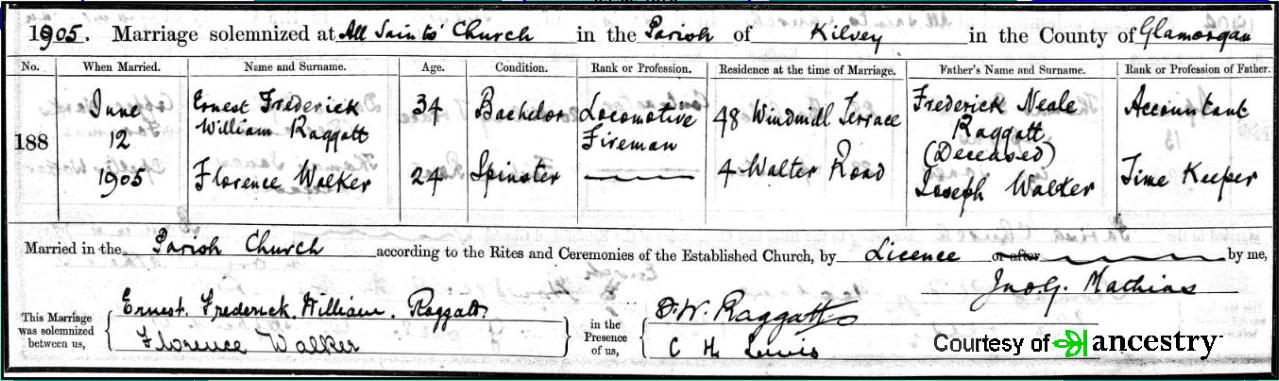 1905. Marriage solemnized at All Saints' Church in the Parish of Kilvey in the County of Glamorgan
No. When Married. Name and Surname. Age. Condition. Rank or Profession. Residence at the time of Marriage. Father's Name and Surname. Rank or Profession of Father.
188 June 12 1905
Ernest Frederick William Raggatt 34 Bachelor Locomotive Fireman 48 Windmill Terrace Frederick Neale Raggatt (Deceased) Accountant
Florence Walker 24 Spinster 4 Walter Road Joseph Walker Time Keeper
Married in the Parish Church according to the Rites and Ceremonies of the Established Church, by Licence or after by me,
Jno. G. Mathias
This Marriage was solemnized between us,
Ernest Frederick William Raggatt
Florence Walker
in the Presence of us,
D. W. Raggatt
C H Lewis
Courtesy of ancestry